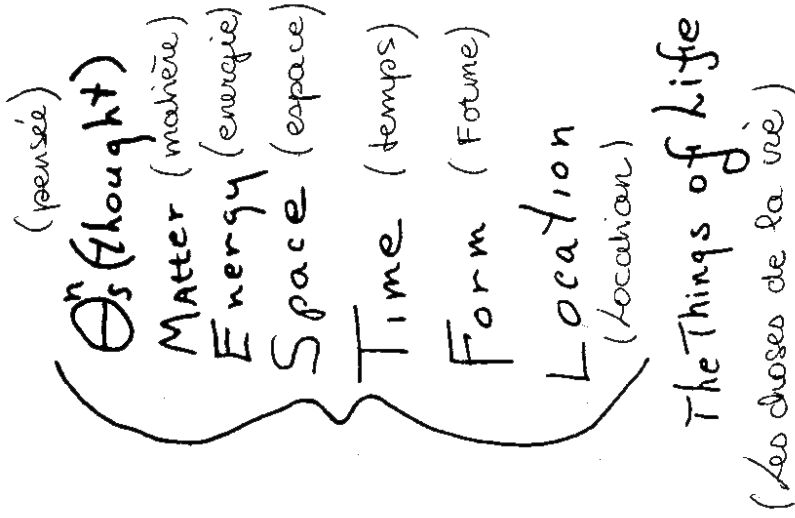 (pensée)
θⁿₛ (thought)
Matter (matière)
Energy (energie)
Space (espace)
Time (temps)
Form (Forme)
Location
(Location)
The Things of Life
(Les choses de la vie)